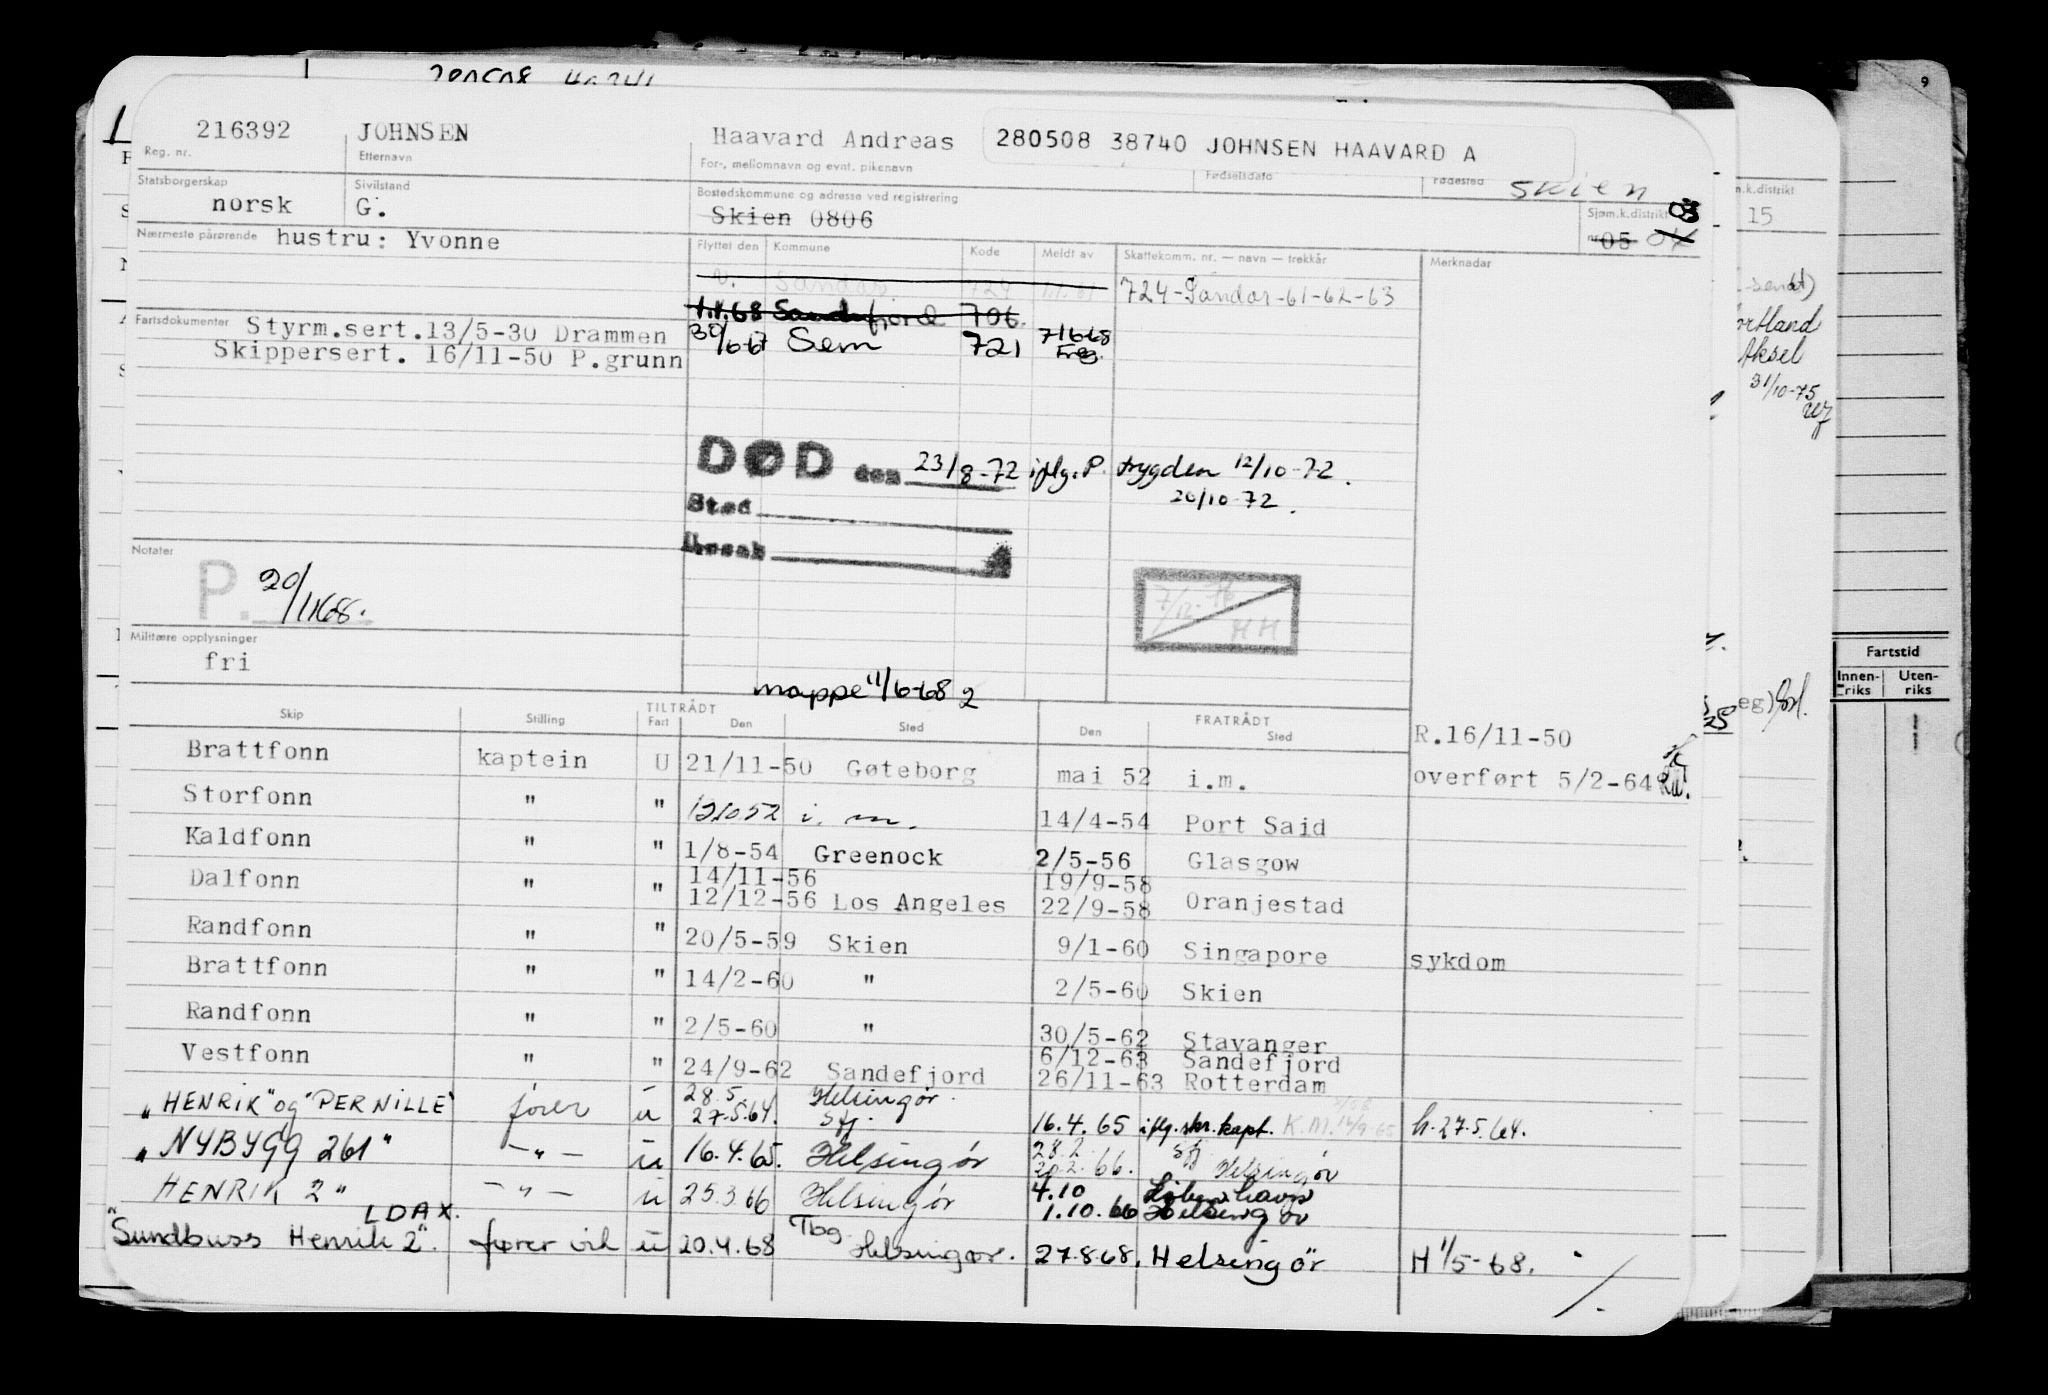 216392 JOHNSEN Haavard Andreas 280508 38740 JOHNSEN HAAVARD A
Reg. nr. Etternavn For-, mellomnavn og evnt. pikenavn Fødselsdato Fødested Skien
Statsborgerskap Sivilstand Bostedskommune og adresse ved registrering Sjøm.k.distrikt
norsk G. Skien 0806 nr. 05
Nærmeste pårørende hustru: Yvonne
Flyttet den Kommune Kode Meldt av Skattekomm. nr. — navn — trekkår Merknader
v. Sandar 724 724-Sandar-61-62-63
1.1.68 Sandefjord 706
Fartsdokumenter Styrm.sert.13/5-30 Drammen
30/6-67 Sem 721 7/6-68
Skippersert. 16/11-50 P.grunn
DØD den 23/8-72 iflg. P. trygden 12/10-72.
20/10-72.
Sted
Årsak
Notater
P. 20/1168.
7/12-76
HH
Militære opplysninger
fri
mappe 11/6-68 2
Skip Stilling TILTRÅDT Fart Den Sted FRATRÅDT Den Sted
R.16/11-50
Brattfonn kaptein U 21/11-50 Gøteborg mai 52 i.m. overført 5/2-64
Storfonn " " 121052 i. m. 14/4-54 Port Said
Kaldfonn " " 1/8-54 Greenock 2/5-56 Glasgow
Dalfonn " " 14/11-56 19/9-58
12/12-56 Los Angeles 22/9-58 Oranjestad
Randfonn " " 20/5-59 Skien 9/1-60 Singapore sykdom
Brattfonn " " 14/2-60 " 2/5-60 Skien
Randfonn " " 2/5-60 " 30/5-62 Stavanger
Vestfonn " " 24/9-62 Sandefjord 6/12-63 Sandefjord
26/11-63 Rotterdam
"HENRIK" og "PERNILLE" fører u 28.5. Helsingør.
27.5.64. Sfj. 16.4.65 iflg. skr. kapt. K.M. 14/9-65 h.27.5.64.
"NYBYGG 261" -"- u 16.4.65. Helsingør 28.2 Sfj
20.2.66. Helsingør
HENRIK 2" -"- u 25.3.66 Helsingør 4.10 København
1.10.66 Helsingør
LDAX.
"Sundbuss Henrik 2". fører vik u 20.4.68 Tbg. Helsingør. 27.8.68. Helsingör H 1/5-68.
n.k.distrikt
15
31/10-75
Fartstid
Innen-riks Uten-riks
9